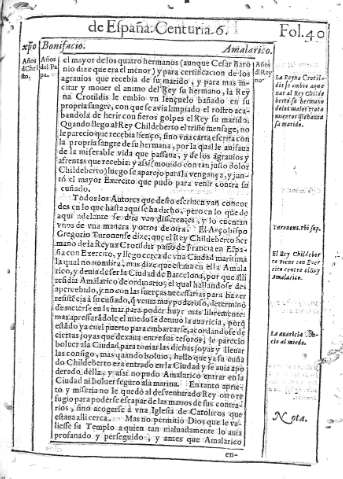 de España: Centuria. 6.
Fol. 40
Bonifacio.
Amalarico.
el mayor de los quatro hermanos (aunque Cesar Baro
nio dize que era el menor) y para certificacion de los
agrauios que recebia de su marido, y para mas in-
citar y mouer el animo del Rey su hermano, la Rey
na Crotildis le embio vn lençuelo bañado en su
propria sangre, con que se auia limpiado el rostro aca-
bandola de herir con fieros golpes el Rey su marido.
Quando llegò al Rey Childeberto el triste mensage, no
le parecio que recebia lienço, sino vna carta escrita con
la propria sangre de su hermana, por la qual le auisaua
de la miserable vida que passaua, y de los agrauios y
afrentas que recebia: y assi mouido con tan justo dolor
Childeberto, luego se aparejo para la vengança, y jun-
tò el mayor Exercito que pudo para venir contra su
cuñado.
Todos los Autores que desto escriuen van concor
des en lo que hasta aqui se ha dicho, pero en lo que de
aqui adelante se dira van diferentes, y lo cuentan
vnos de vna manera y otros de otra. El Arçobispo
Gregorio Turonense dize, que el Rey Childeberto her
mano de la Reyna Crotildis passò de Francia en Espa-
ña con Exercito, y llegò cerca de vna Ciudad maritima
la qual no nombra, mas dize que estaua en ella Amala
rico, y deuia de ser la Ciudad de Barcelona, por que alli
residia Amalarico de ordinario, el qual hallandose des
apercebido, y no con las fuerças necessarias para hazer
resistencia a su cuñado, que venia muy poderoso, determinò
de meterse en la mar para poder huyr mas libremente:
mas apressurandole el miedo se detuuo la auaricia, porq
estando ya en el puerto para embarcarse, acordandose de
ciertas joyas que dexaua entre sus tesoros, le parecio
boluer a la Ciudad, para tomar las dichas joyas y lleuar
las consigo, mas quando boluio, hallò que ya su cuña
do Childeberto era entrado en la Ciudad y se auia apo
derado della, y assi no pudo Amalarico entrar en la
Ciudad ni boluer seguro a la marina. Entanto aprie-
to y miseria no le quedò al desuenturado Rey otro re
fugio para poderse escapar de las manos de sus contra-
rios, sino acogerse à vna Iglesia de Catolicos que
estaua alli cerca. Mas no permitio Dios que le va-
liesse su Templo a quien tan maluadamente lo auia
profanado y perseguido, y antes que Amalarico
en-
La Reyna Crotil-
Turonens.
El Rey Childeber
to
Amalarico.
La auaricia
Nota.